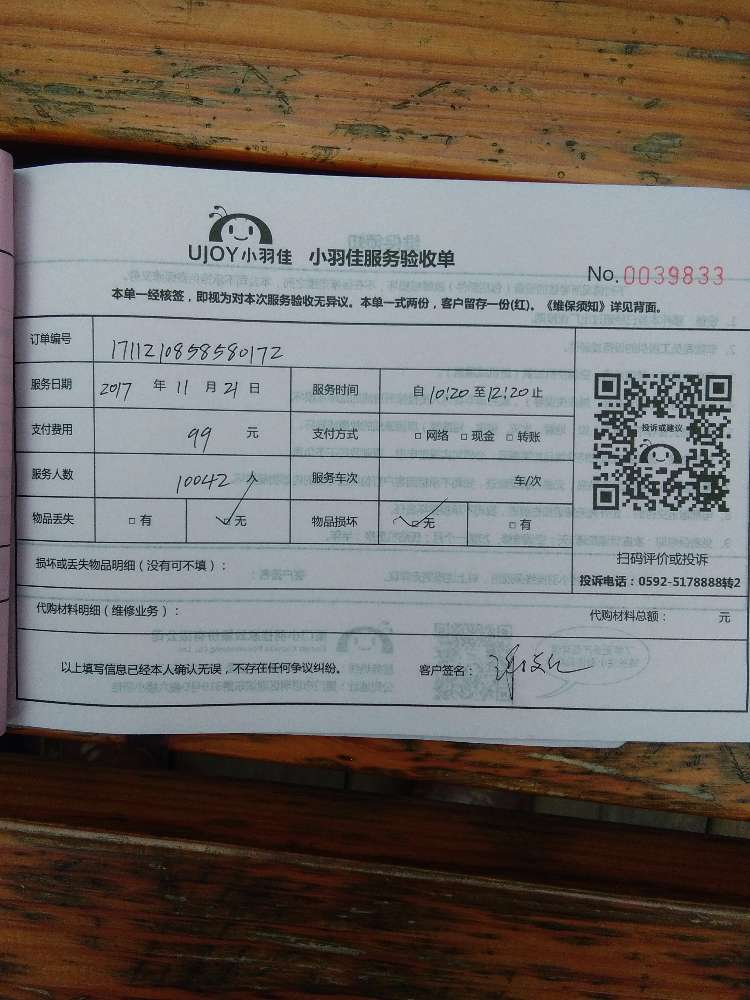 UJOY小羽佳 小羽佳服务验收单
No. 0039833
本单一经核签，即视为对本次服务验收无异议。本单一式两份，客户留存一份(红)。《维保须知》详见背面。
订单编号 1711210858580172
服务日期 2017 年 11 月 21 日 服务时间 自 10:20 至 12:20 止
支付费用 99 元 支付方式 □ 网络 □ 现金 □ 转账
服务人数 10042 人 服务车次 车/次
物品丢失 □ 有 □ 无 物品损坏 □ 无 □ 有
投诉或建议
扫码评价或投诉
投诉电话：0592-5178888转2
损坏或丢失物品明细（没有可不填）：
代购材料明细（维修业务）： 代购材料总额： 元
以上填写信息已经本人确认无误，不存在任何争议纠纷。 客户签名：